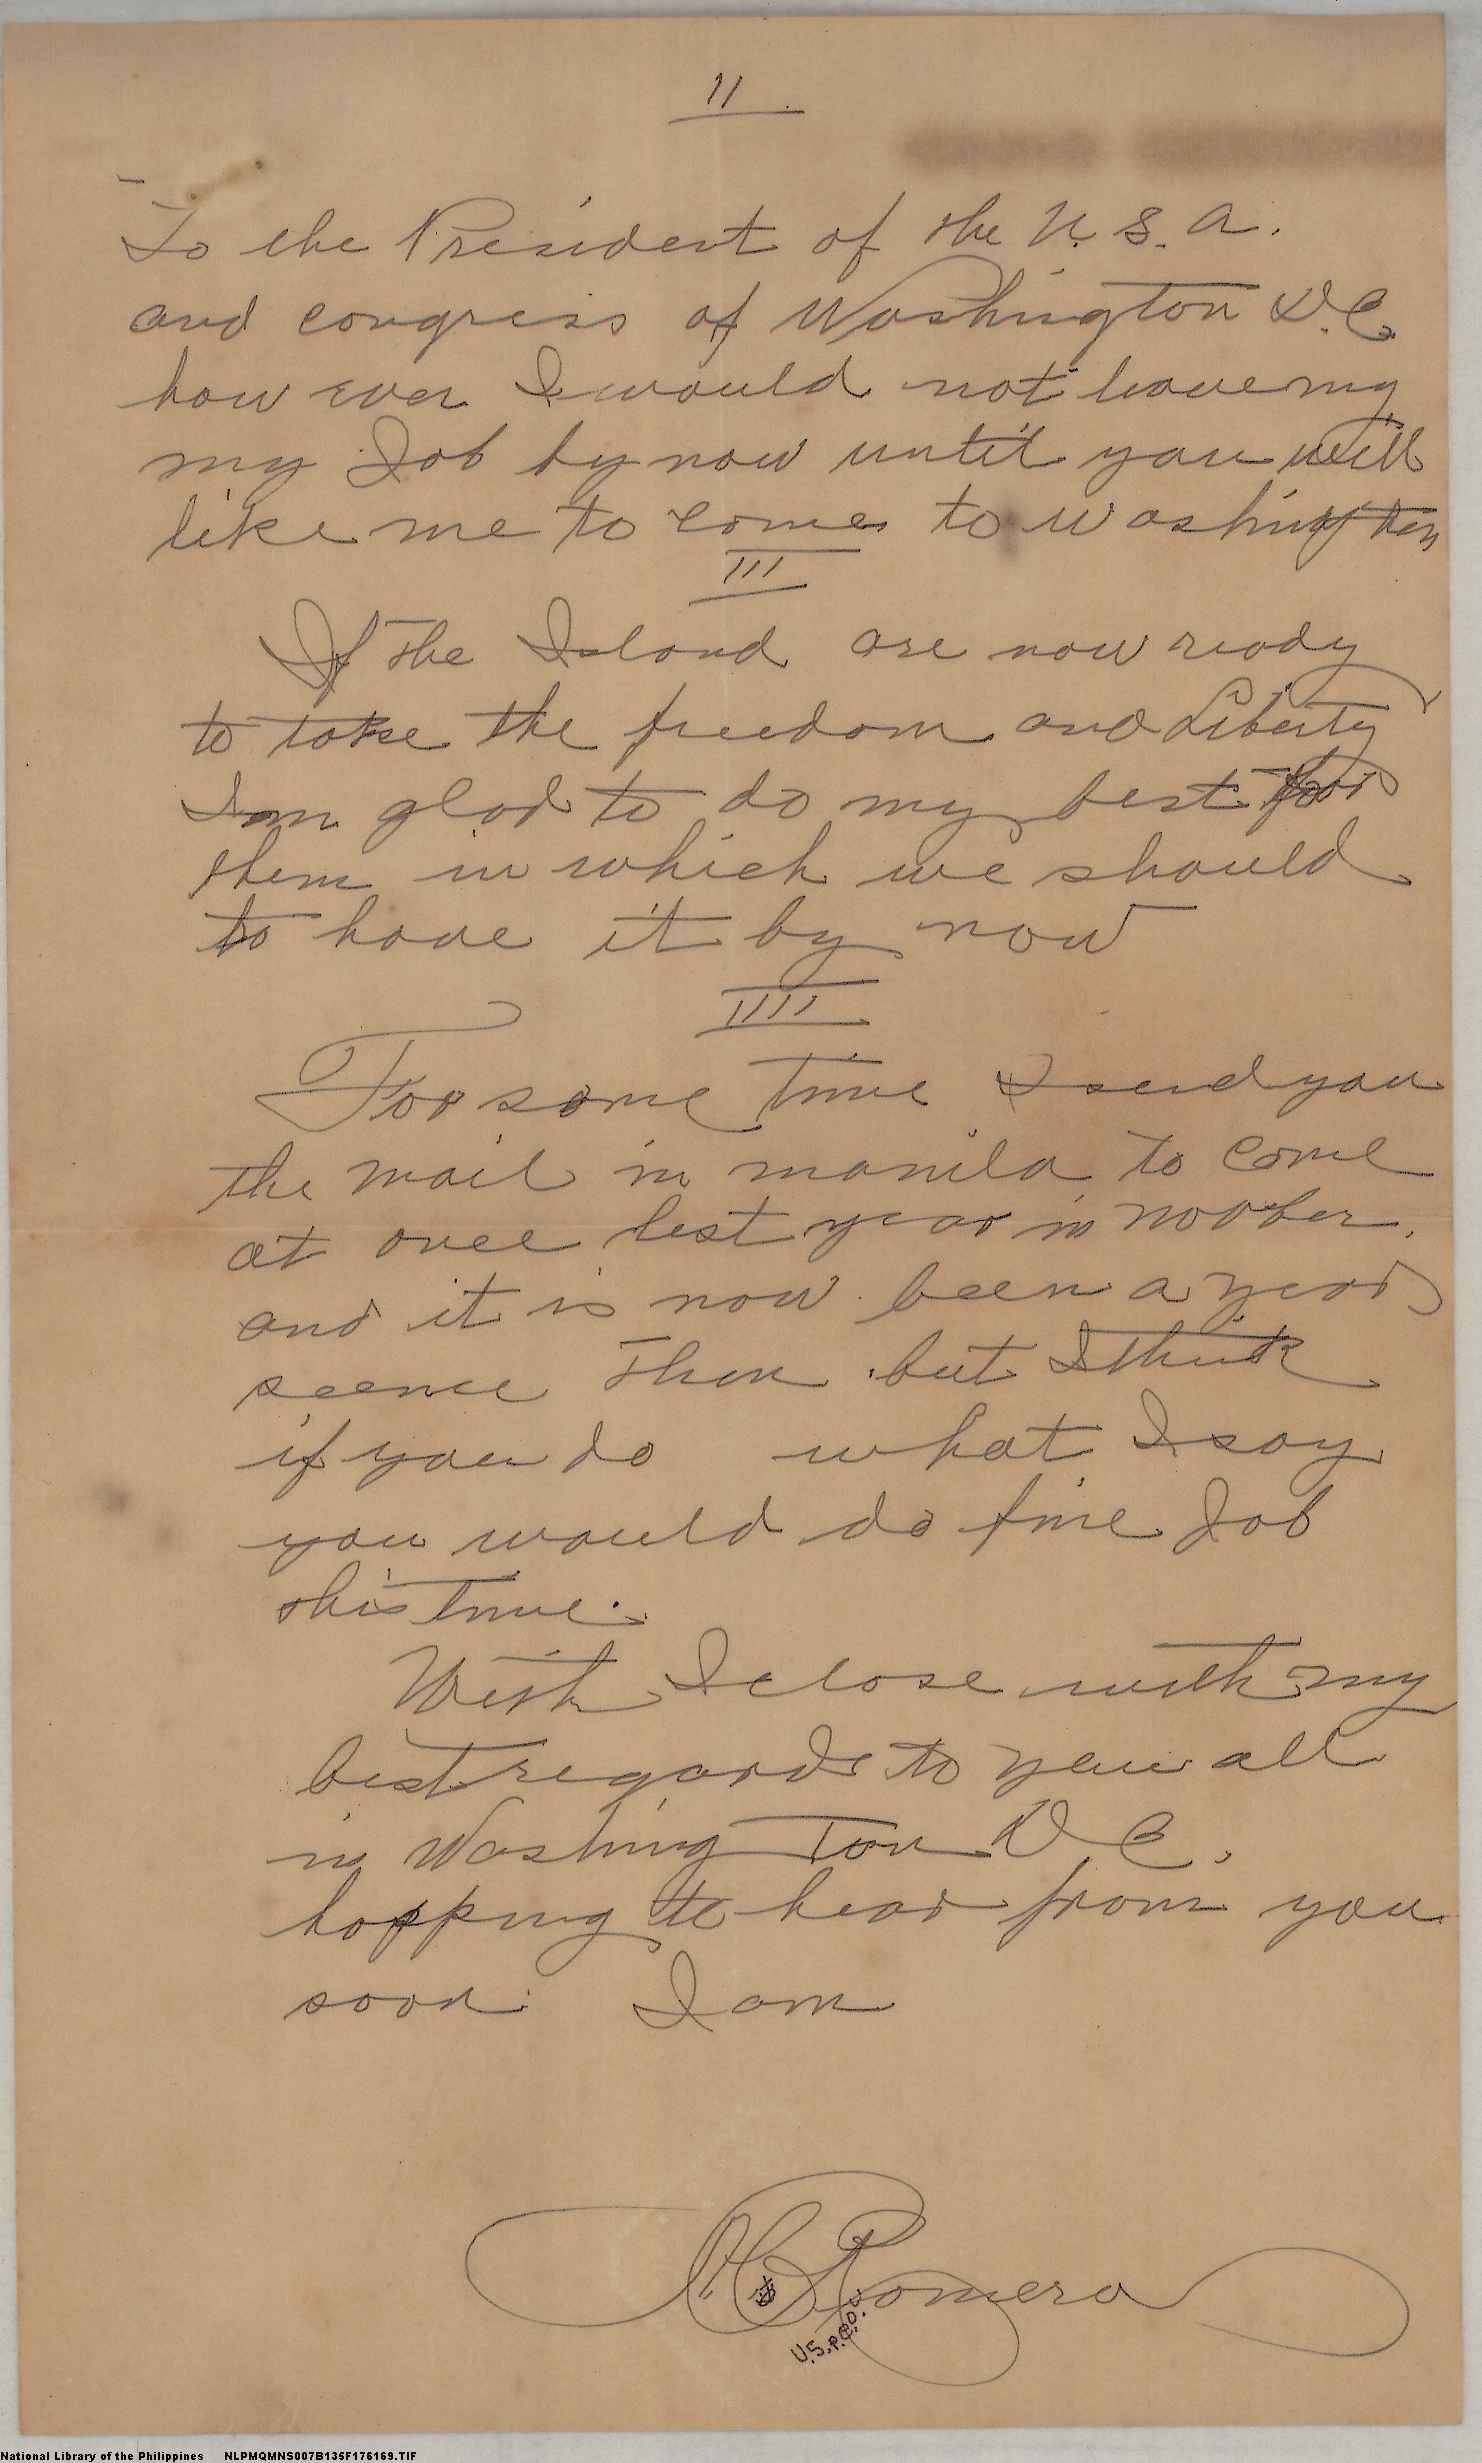 II
To the President of the U.S.A.
and congress of Washington D.C.
how ever I would not leave my
my Job by now until you will
like me to come to washington
III
If the Island are now ready
to take the freedom and Liberty
I am glad to do my best for
them in which we should
to have it by now
IIII
For some time I send you
the mail in manila to come
at once last year in
and it is now been a year
seence then but I think
if you do what I say
you would do fine Job
this time.
With I close with my
best regards to you all
in Washington D C.
hopping to hear from you
soon I am
Romero
U.S.P.O.
National Library of the Philippines NLPMQMNS007B135F176169.TIF